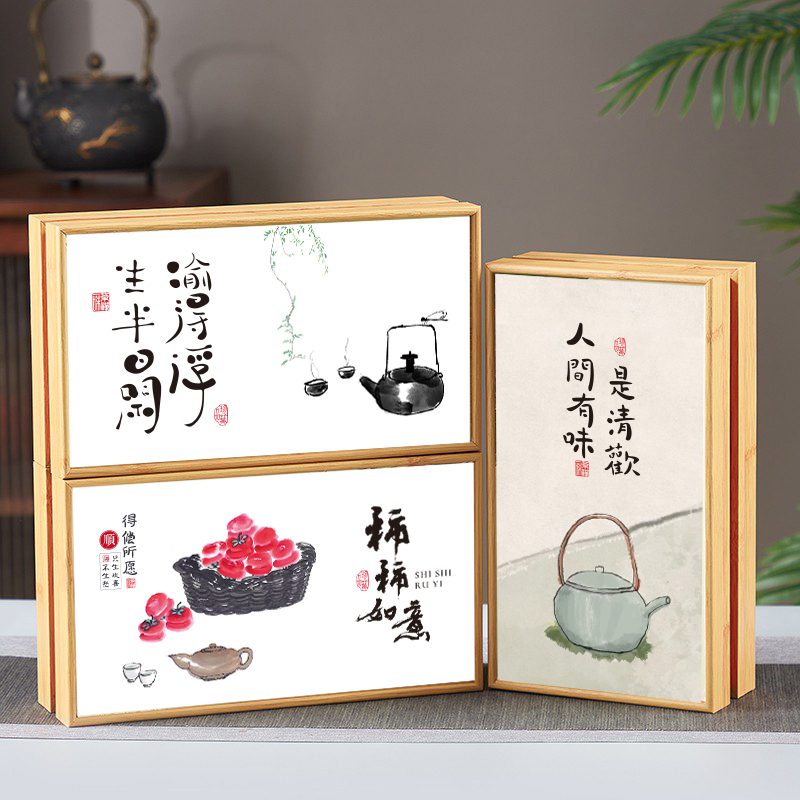 偷得浮
生半日閑
得偿所愿
順
只生欢喜
不生愁
柿柿
如意
SHI SHI
RU YI
人間有味
是清歡